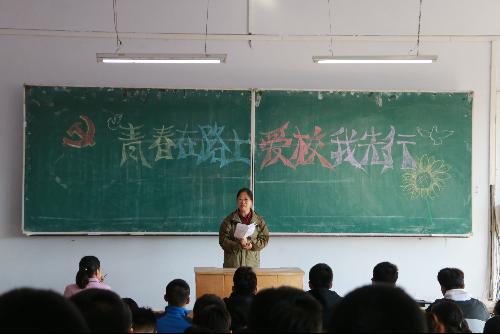 青春在路上 爱校我先行